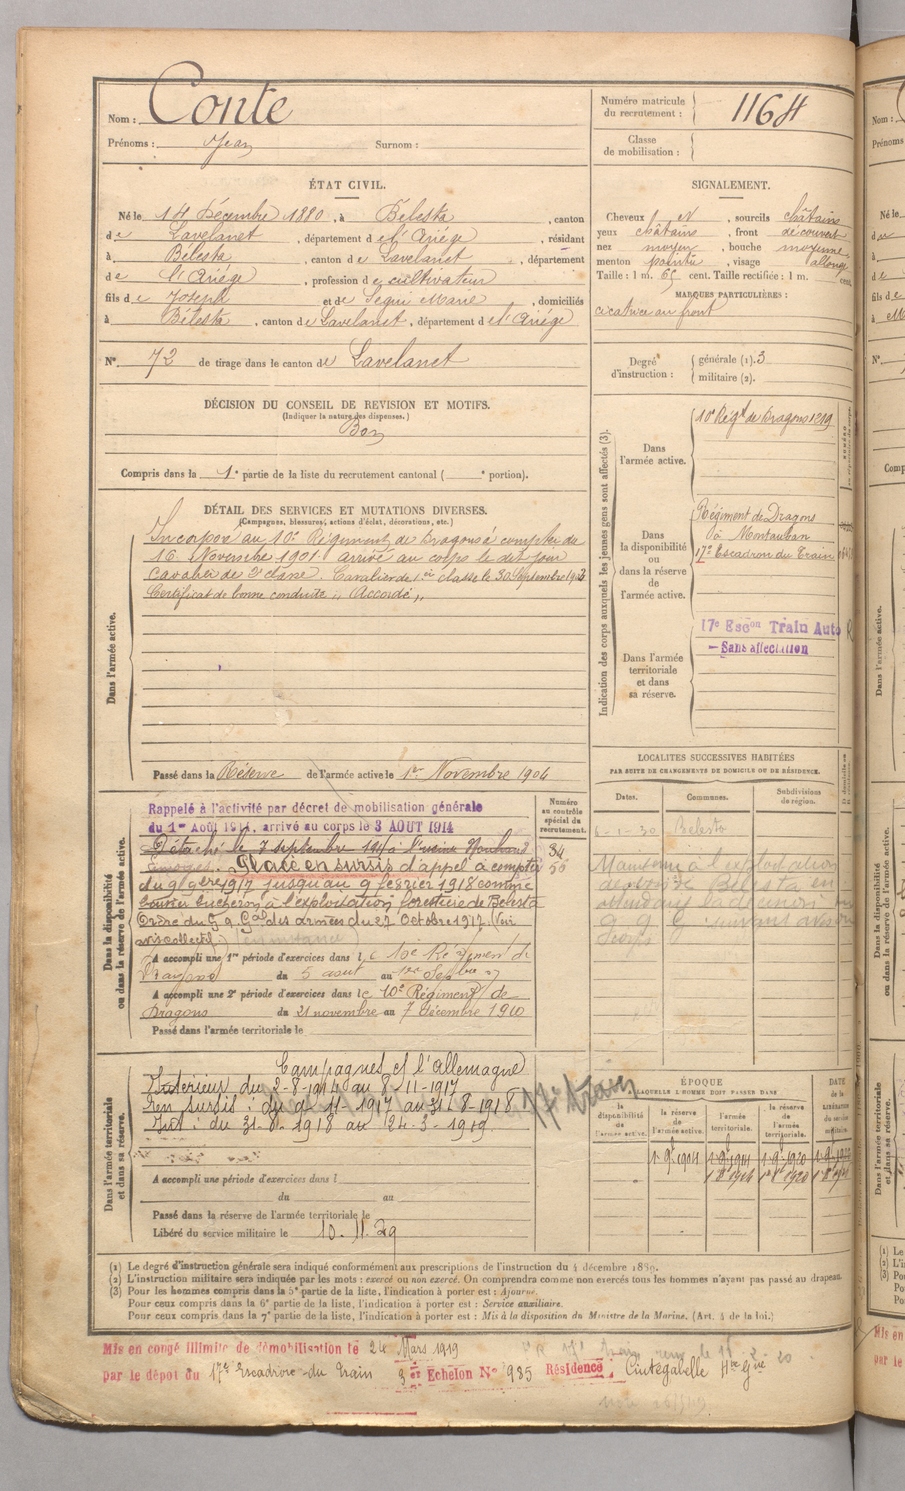 Nom : Conte
Prénoms : Jean Surnom :
Numéro matricule du recrutement : 1164
Classe de mobilisation :
ÉTAT CIVIL.
Né le 14 Décembre 1880, à Bélesta, canton
de Lavelanet, département de l'Ariège, résidant
à Bélesta, canton de Lavelanet, département
de l'Ariège, profession de cultivateur
fils de Joseph et de Segui Marie, domiciliés
à Bélesta, canton de Lavelanet, département de l'Ariége
N° 72 de tirage dans le canton de Lavelanet
SIGNALEMENT.
Cheveux et, sourcils châtains
yeux châtains, front découvert
nez moyen, bouche moyenne
menton pointu, visage allongé
Taille : 1 m. 65 cent. Taille rectifiée : 1 m. cent.
MARQUES PARTICULIÈRES :
cicatrice au front
Degré d'instruction : générale (1). 3
militaire (2).
DÉCISION DU CONSEIL DE REVISION ET MOTIFS.
(Indiquer la nature des dispenses.)
Bon
Compris dans la 1e partie de la liste du recrutement cantonal ( e portion).
DÉTAIL DES SERVICES ET MUTATIONS DIVERSES.
(Campagnes, blessures, actions d'éclat, décorations, etc.)
Dans l'armée active.
Incorporé au 10e Régiment de Dragons à compter du
16 Novembre 1901. arrivé au corps le dit jour
Cavalier de 2e classe. Cavalier de 1ère classe le 30 Septembre 1903
Certificat de bonne conduite „ Accordé „
Passé dans la Réserve de l'armée active le 1er Novembre 1904
Indication des corps auxquels les jeunes gens sont affectés (3).
Dans l'armée active.
10e Régt de Dragons 1219
Dans la disponibilité ou dans la réserve de l'armée active.
Régiment de Dragons
à Montauban
17e Escadron du Train
Dans l'armée territoriale et dans sa réserve.
17e Escon Train Auto R
— Sans affectation
LOCALITES SUCCESSIVES HABITÉES
PAR SUITE DE CHANGEMENTS DE DOMICILE OU DE RÉSIDENCE.
Dates. Communes. Subdivisions de région.
6-1-30 Belesta
Maintenu à l'exploitation
Belesta en
attendant la décision du
Dans la disponibilité ou dans la réserve de l'armée active.
Numéro au contrôle spécial du recrutement.
34
Rappelé à l'activité par décret de mobilisation générale
du 1er Août 1914, arrivé au corps le 3 AOUT 1914
Détaché le 7 septembre à l'usine
Limoges. Placé en sursis d'appel à compter
du 9 9bre 1917 jusqu'au 9 février 1918 comme
bûcheron à l'exploitation forestière de Belesta
Ordre du G Q Gal des armées du 27 Octobre 1917. (Voir
avis collectif)
A accompli une 1re période d'exercices dans le 10e Régiment de
Dragons du 5 aout au 1er Sepbre 07
A accompli une 2e période d'exercices dans le 10e Régiment de
Dragons du 21 novembre au 7 décembre 1910
Passé dans l'armée territoriale le
Dans l'armée territoriale et dans sa réserve.
Campagnes ct l'Allemagne
Intérieur du 2-8-1914 au 8-11-1917
En sursis : du 9-11-1917 au 31-8-1918
Int : du 31-8-1918 au 24-3-1919.
17e train
A accompli une période d'exercices dans l
du au
Passé dans la réserve de l'armée territoriale le
Libéré du service militaire le 10. 11. 29
ÉPOQUE
À LAQUELLE L'HOMME DOIT PASSER DANS
la disponibilité de l'armée active. la réserve de l'armée active. l'armée territoriale. la réserve de l'armée territoriale.
DATE de la LIBÉRATION du service militaire.
1 9bre 1904
(1) Le degré d'instruction générale sera indiqué conformément aux prescriptions de l'instruction du 4 décembre 1889.
(2) L'instruction militaire sera indiquée par les mots : exercé ou non exercé. On comprendra comme non exercés tous les hommes n'ayant pas passé au drapeau.
(3) Pour les hommes compris dans la 5e partie de la liste, l'indication à porter est : Ajourné.
Pour ceux compris dans la 6e partie de la liste, l'indication à porter est : Service auxiliaire.
Pour ceux compris dans la 7e partie de la liste, l'indication à porter est : Mis à la disposition du Ministre de la Marine. (Art. 4 de la loi.)
Mis en congé illimité de démobilisation le 24 Mars 1919
par le dépôt du 17e Escadron du Train 3e Echelon N° 985 Résidence : Cintegabelle Hte Gne